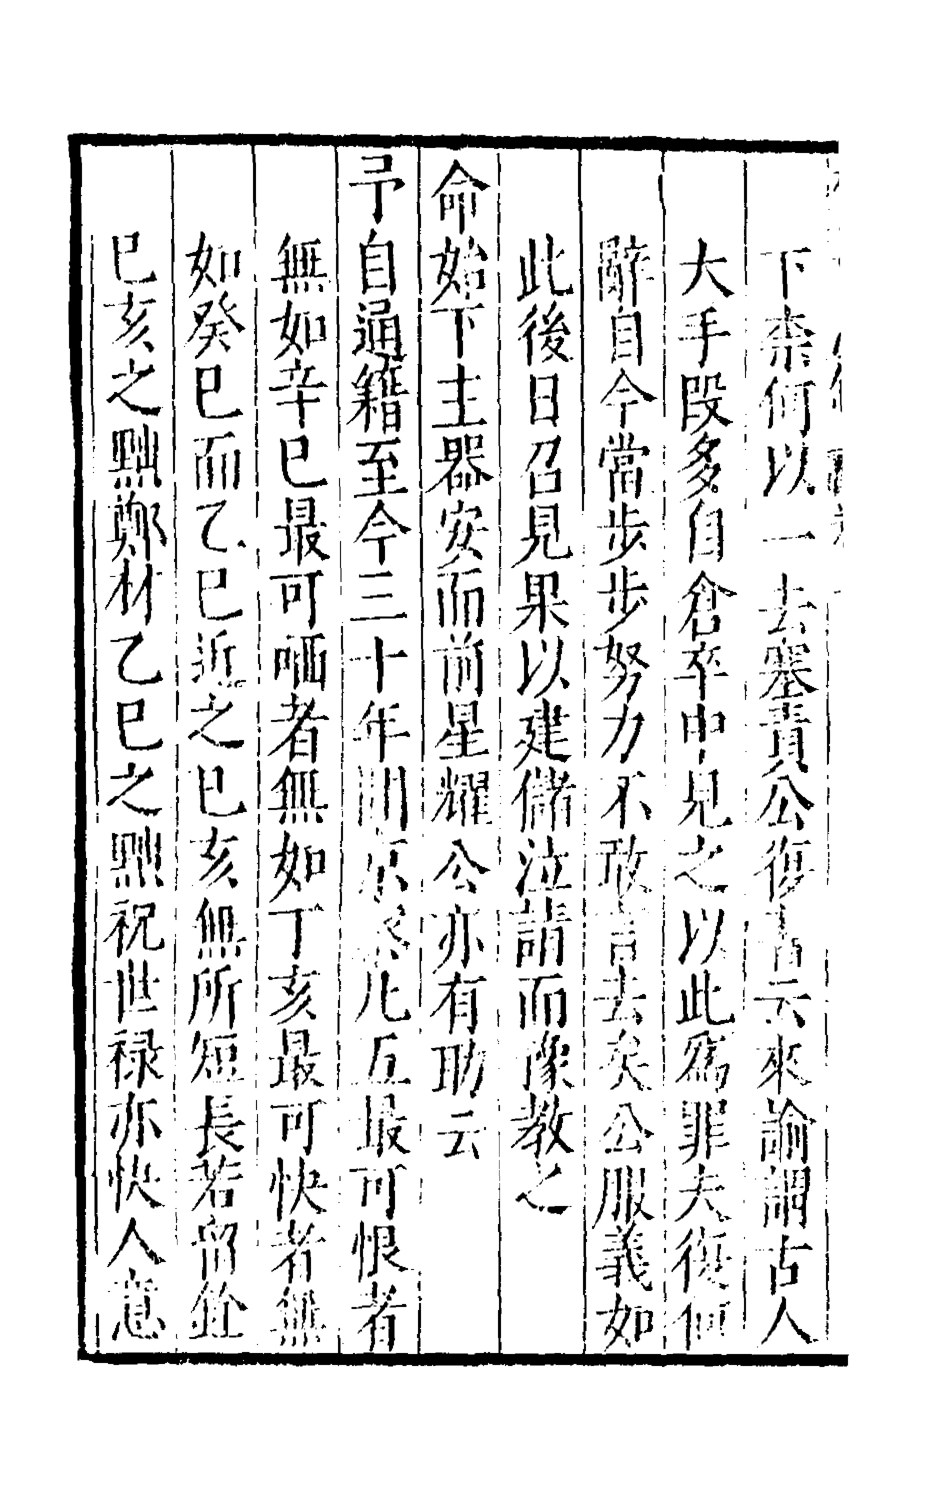 下柰何以一去塞責公復書云來諭謂古人
大手段多自倉卒中見之以此爲罪夫復何
辭自今當步步努力不敢言去矣公服義如
此後日召見果以建儲泣請而豫教之
命始下主器安而前星耀公亦有助云
予自通籍至今三十年間京察凡五最可恨者
無如辛巳最可哂者無如丁亥最可快者無
如癸巳而乙巳近之巳亥無所短長若留銓
巳亥之黜鄭材乙巳之黜祝世禄亦快人意